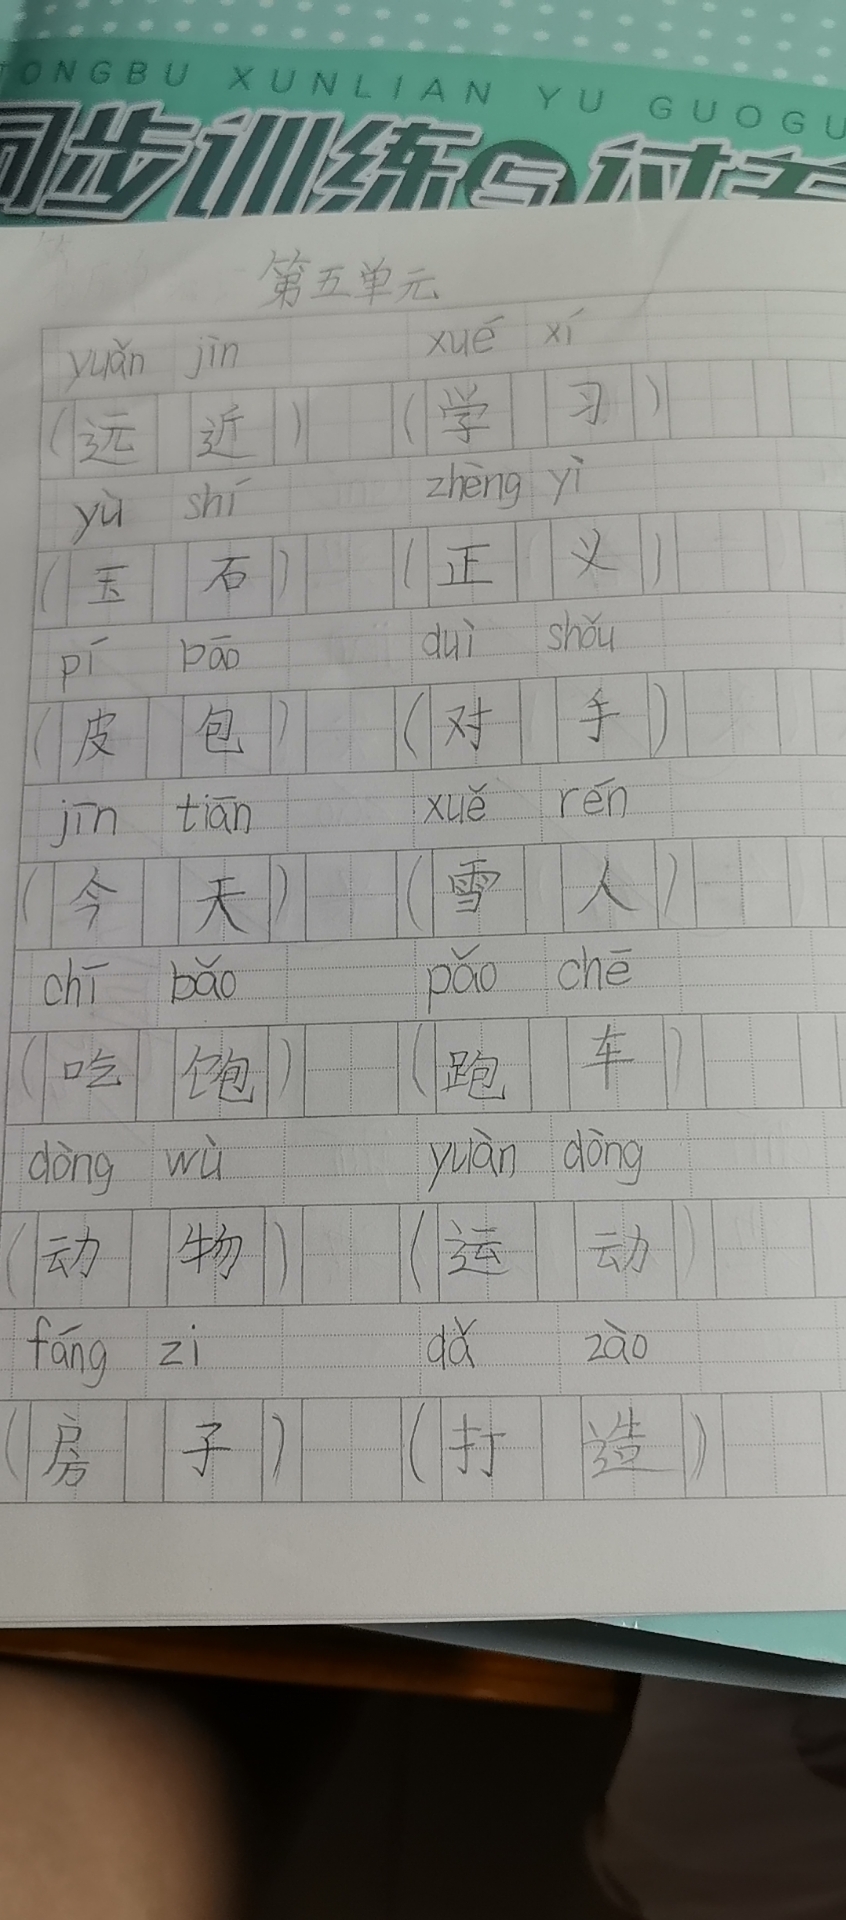 TONGBU XUNLIAN YU GUOGU
同步训练与过关
第五单元
yuǎn jìn xué xí
(远近) (学习)
yù shí zhèng yì
(玉石) (正义)
pí bāo duì shǒu
(皮包) (对手)
jīn tiān xuě rén
(今天) (雪人)
chī bǎo pǎo chē
(吃饱) (跑车)
dòng wù yuàn dòng
(动物) (运动)
fáng zi dǎ zào
(房子) (打造)